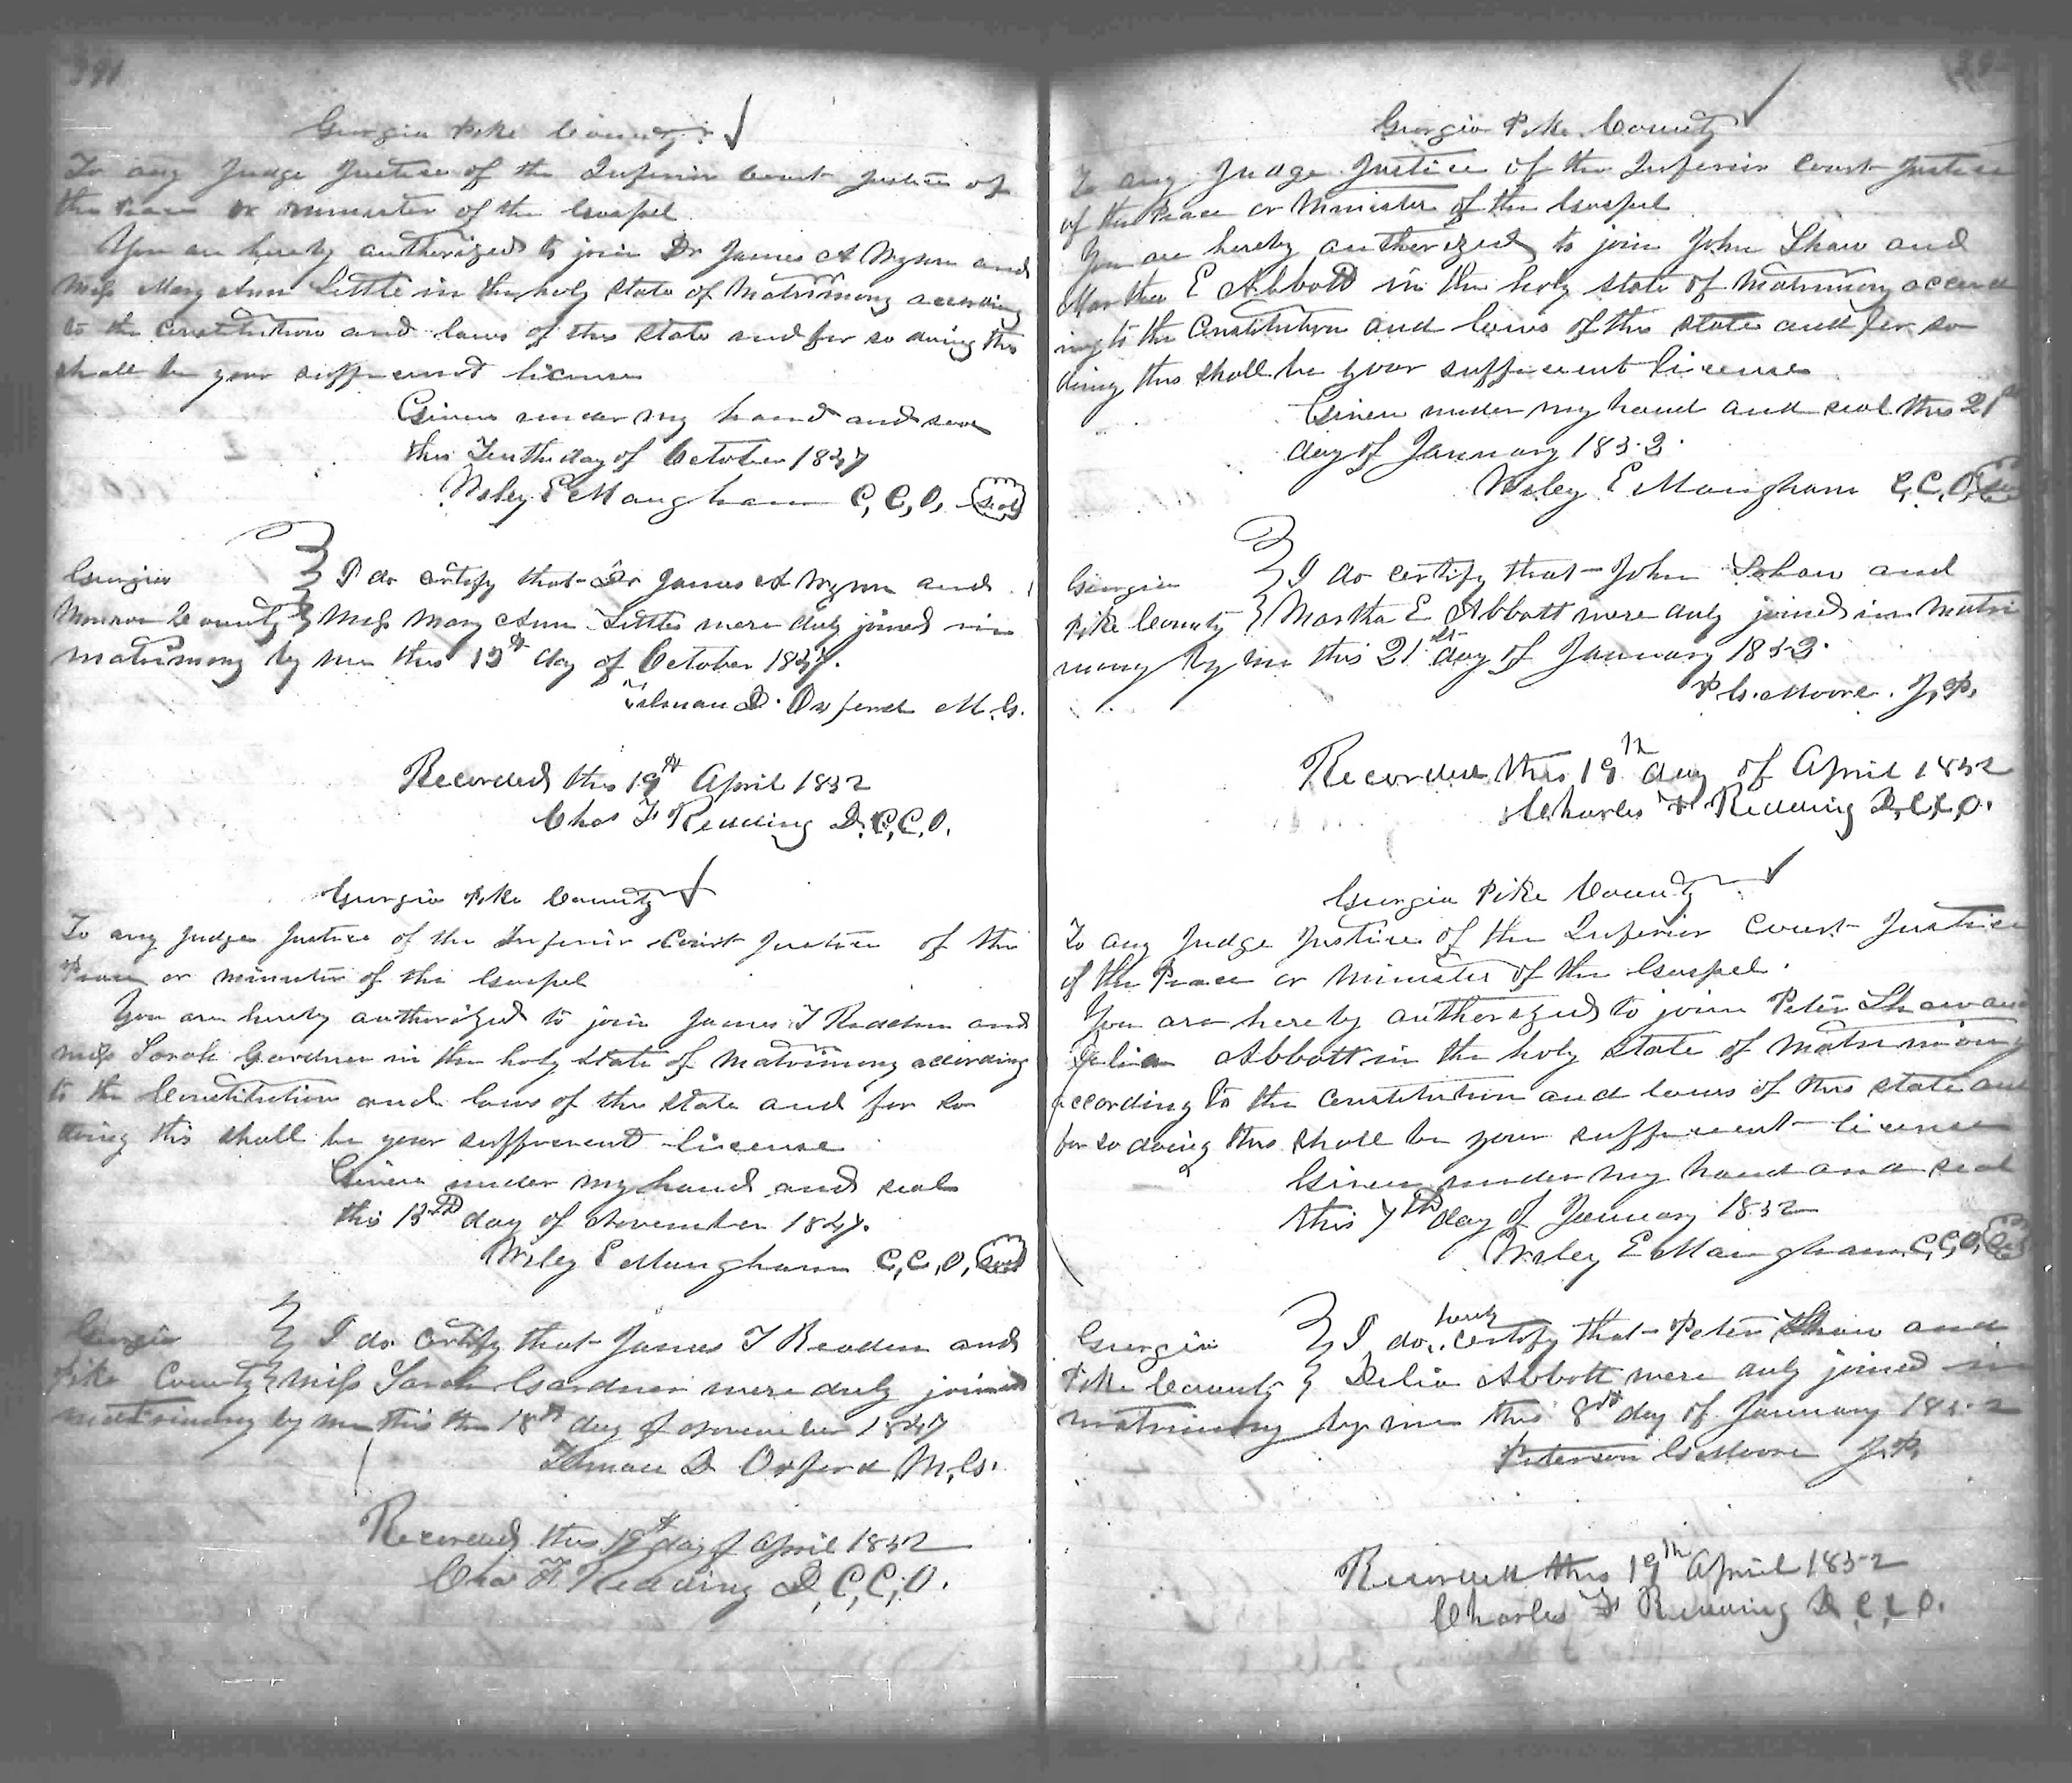 391
Georgia Pike County
To any Judge Justice of the Inferior Court Justice of
the Peace or minister of the Gospel
You are hereby authorized to join Dr James A Wynn and
Miss Mary Ann Little in the holy state of Matrimony according
to the constitution and laws of this state and for so doing this
shall be your sufficient license
Given under my hand and seal
this Tenth day of October 1847
Wiley E Mangham C, C, O, Seal
Georgia } I do certify that Dr James A Wynn and
Monroe County } Miss Mary Ann Little were duly joined in
matrimony by me this 13th day of October 1847.
Tilman D. Oxford M. G.
Recorded this 19th April 1852
Chas F Redding D. C, C, O.
Georgia Pike County
To any Judge Justice of the Inferior Court Justice of the
Peace or minister of the Gospel
You are hereby authorized to join James T Readen and
miss Sarah Gardner in the holy state of Matrimony according
to the Constitution and laws of this state and for so
doing this shall be your sufficient license
Given under my hand and seal
this 13th day of November 1847.
Wiley E Mangham C, C, O, Seal
Georgia } I do certify that James T Readen and
Pike County } miss Sarah Gardner were duly joined
matrimony by me this the 18th day of November 1847
Tilman D Oxford M, G.
Recorded this 19th day of April 1852
Chas F Redding D, C, C, O.
Georgia Pike County
To any Judge Justice of the Inferior Court Justice
of the Peace or Minister of the Gospel
You are hereby authorized to join John Shaw and
Martha E Abbott in the holy state of Matrimony accord
ing to the Constitution and laws of this state and for so
doing this shall be your sufficient license
Given under my hand and seal this 21st
day of January 1852.
Wiley E Mangham C, C, O, Seal
Georgia } I do certify that John Shaw and
Pike County } Martha E Abbott were duly joined in Matri
mony by me this 21st day of January 1852.
P G. Moore. J, P,
Recorded this 19th day of April 1852
Charles F Redding D, C, C, O.
Georgia Pike County
To any Judge Justice of the Inferior Court Justice
of the Peace or Minister of the Gospel.
You are hereby authorized to join Peter Shaw and
Delia Abbott in the holy state of Matrimony
according to the constitution and laws of this state and
for so doing this shall be your sufficient license
Given under my hand and seal
this 7th day of January 1852
Wiley E Mangham C, C, O, Seal
Georgia } I do hereby certify that Peter Shaw and
Pike County } Delia Abbott were duly joined in
matrimony by me this 8th day of January 1852
Peterson G Moore J, P,
Recorded this 19th April 1852
Charles F Redding D C, C O.